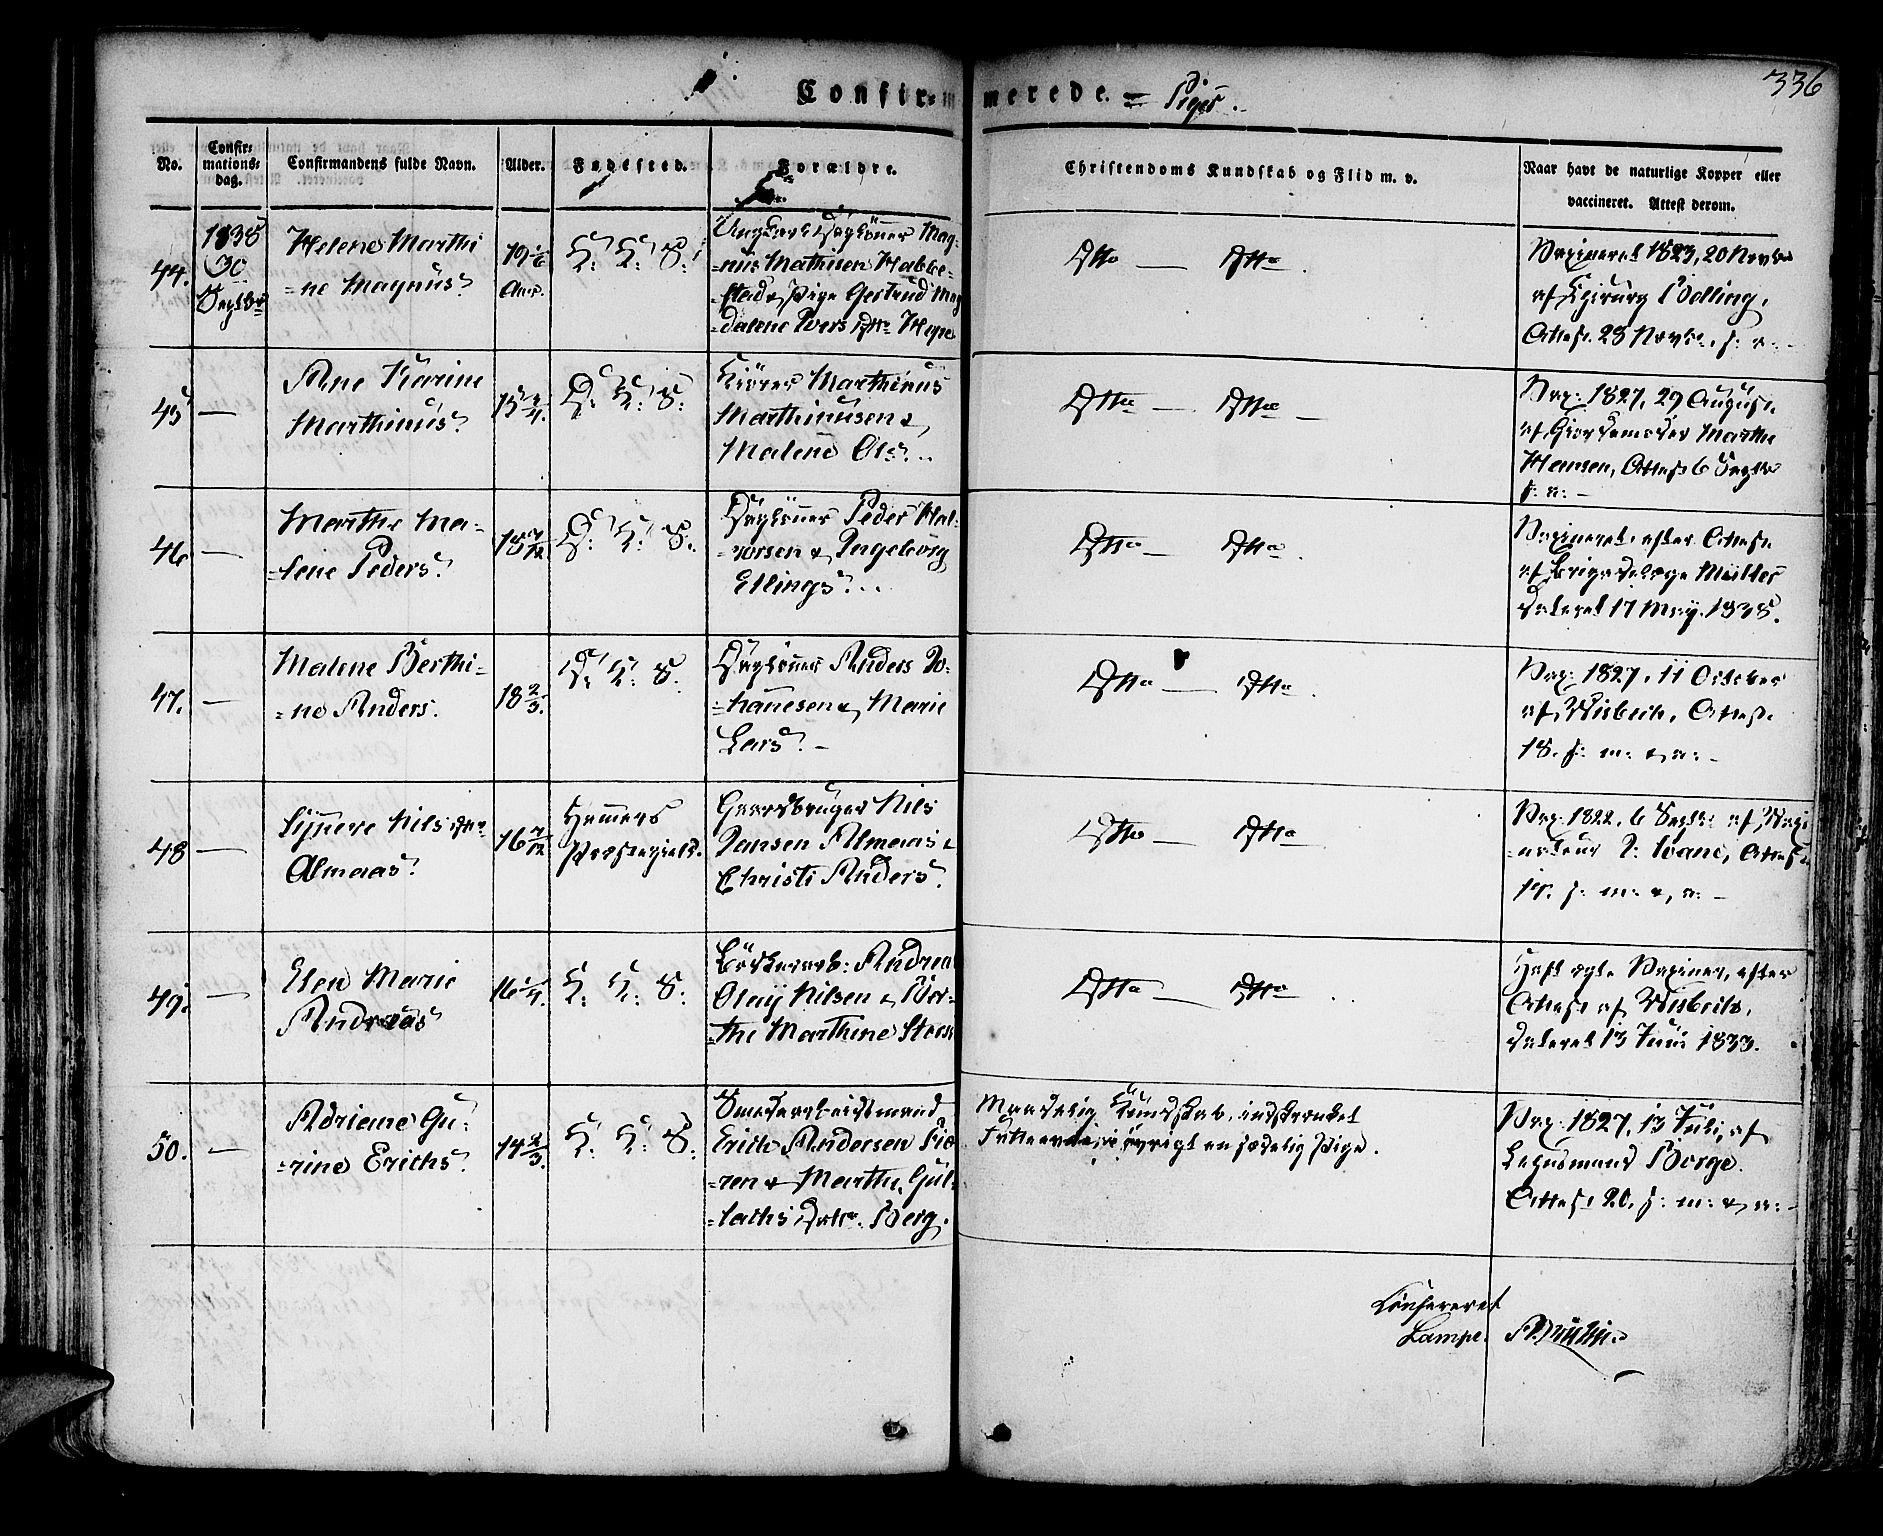 336
Confirmerede. = Piger.
No.
Confir-
mations-
dag.
Confirmandens fulde Navn.
Alder.
Fødested.
Forældre.
Christendoms Kundskab og Flid m. v.
Naar havt de naturlige Kopper eller
vaccineret. Attest derom.
44.
1838
30
Septbr
Helene Marthi
=ne Magnus
19 1/6
Aar.
K: K: S:
Ungkarl Dagløner Mag-
=nus Mathisen Habbe-
=stad & Pige Gertrud Mag
=dalene Ivers
Dtto — Dtto.
Vaxineret 1823, 20 Novbr
af Chirurg Bolling,
Attest 23 Novbr. s: a:
45
—
Ane Karine
Marthinus
D: K: S:
Marthinus
Marthinusen &
Malene Ols
Dtto — Dtto —
Vax: 1827, 29 August
af Giordemoder Marthe
Hansen, Attest 6 Septbr
s: a: —
46
—
Marthe Ma-
=lene Peders
15 7/12
D: K: S:
Dagløner Peder Hal-
=vorsen & Ingeborg
Ellings
Dtto — Dtto.
Vaxineret, efter Attest
af Brigadelæge Müller
dateret 17 May 1838.
47.
—
Malene Berthi-
=ne Anders.
18 2/3.
D: K: S:
Dagløner Anders Jo-
=hannesen & Marie
Lars —
Dtto — Dtto.
Vax: 1827, 11 October
af Wisbech, Attest
18. s: m: & a: —
48
—
Synneve Nilsdtr
Almaas
16 7/12
Hammers
Præstegield.
Gaardbruger Nils
Jansen Almaas &
Christi Anders
Dtto — Dtto
Vax: 1822, 6 Septbr af Vaxi
s: m: & a: —
49.
—
Elen Marie
Andreas
16 1/4.
K: K: S:
Andrea
Olaus Nilsen & Ber-
=the Marthine
Dtto — Dtto
Havt ægte Vaxiner, efter
Attest af Wisbech,
dateret 13 Juni 1833.
50.
—
Adriane Gu-
=rine Erichs
14 2/3.
K: K: S:
Smedarbeidsmand
Erich Andersen
& Marthe Gul-
=lachs Datr. Berg.
Maadelig Kundskab, indskrænket
Fatteevne, i øvrigt en sædelig Pige.
Vax: 1827, 13 Juli, af
Lensmand Borge.
Attest 20. s: m: & a: —
Confereret
Lampe.